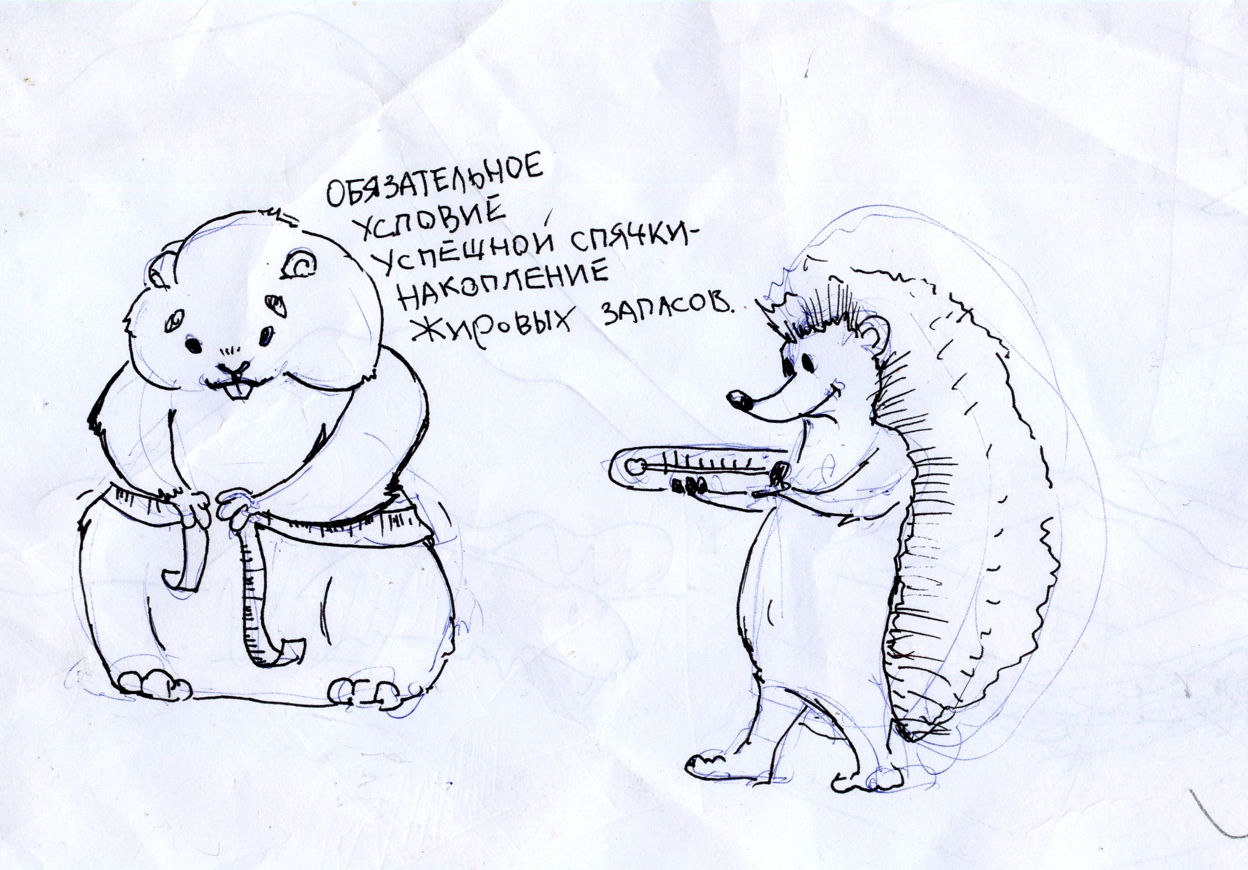 ОБЯЗАТЕЛЬНОЕ
УСЛОВИЕ
УСПЕШНОЙ СПЯЧКИ-
НАКОПЛЕНИЕ
ЖИРОВЫХ ЗАПАСОВ.